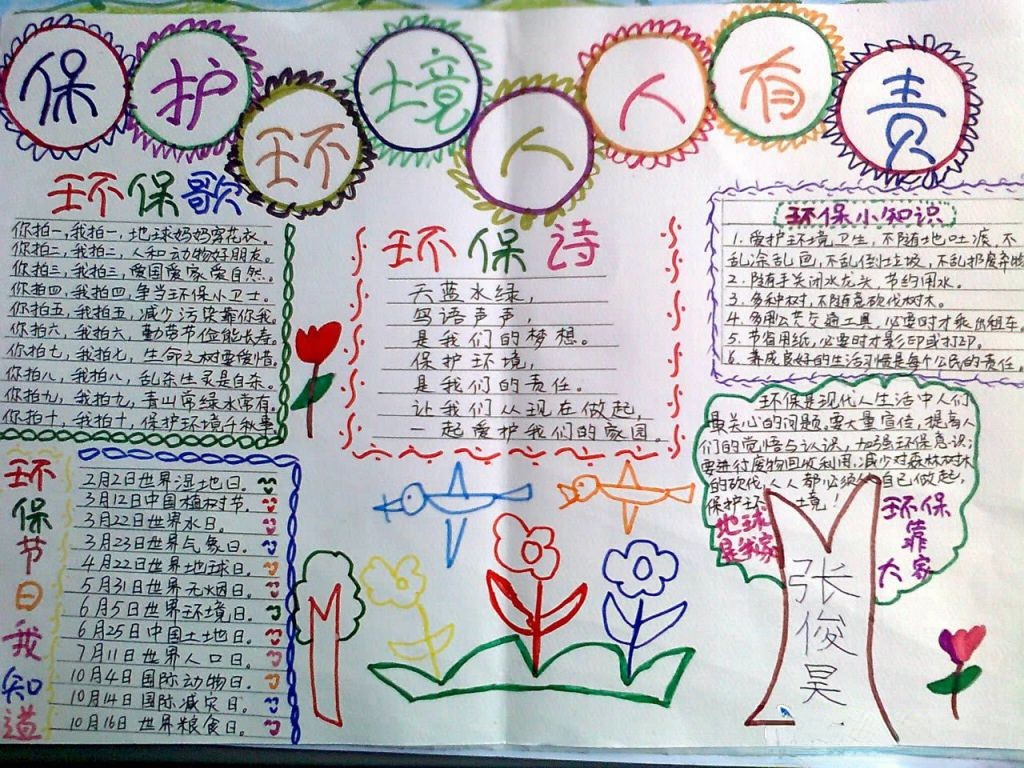 保护环境人人有责
环保歌
你拍一,我拍一,地球妈妈穿花衣。
你拍二,我拍二,人和动物好朋友。
你拍三,我拍三,爱国爱家爱自然。
你拍四,我拍四,争当环保小卫士。
你拍五,我拍五,减少污染靠你我。
你拍六,我拍六,勤劳节俭能长寿。
你拍七,我拍七,生命之树要爱惜。
你拍八,我拍八,乱杀生灵是自杀。
你拍九,我拍九,青山常绿水常有。
你拍十,我拍十,保护环境千秋事
环保诗
天蓝水绿,
鸟语声声,
是我们的梦想。
保护环境,
是我们的责任。
让我们从现在做起,
一起爱护我们的家园。
环保小知识
1.爱护环境卫生,不随地吐痰,不
乱涂乱画,不乱倒垃圾,不乱扔废弃物
2.随手关闭水龙头,节约用水。
3.多种树,不随意砍伐树木。
4.多用公共交通工具,必要时才乘出租车,
5.节省用纸,必要时才影印或打印。
6.养成良好的生活习惯是每个公民的责任。
环保是现代人生活中人们
最关心的问题,要大量宣传,提高人
们的觉悟与认识,加强环保意识;
要进行废物回收利用,减少对森林树木
的砍伐,人人都必须从自己做起,
保护环境!
地球
是我家
环保
靠
大家
张俊昊
环保节日我知道
2月2日世界湿地日。
3月12日中国植树节。
3月22日世界水日。
3月23日世界气象日。
4月22日世界地球日。
5月31日世界无烟日。
6月5日世界环境日。
6月25日中国土地日。
7月11日世界人口日。
10月4日国际动物日。
10月14日国际减灾日。
10月16日世界粮食日。